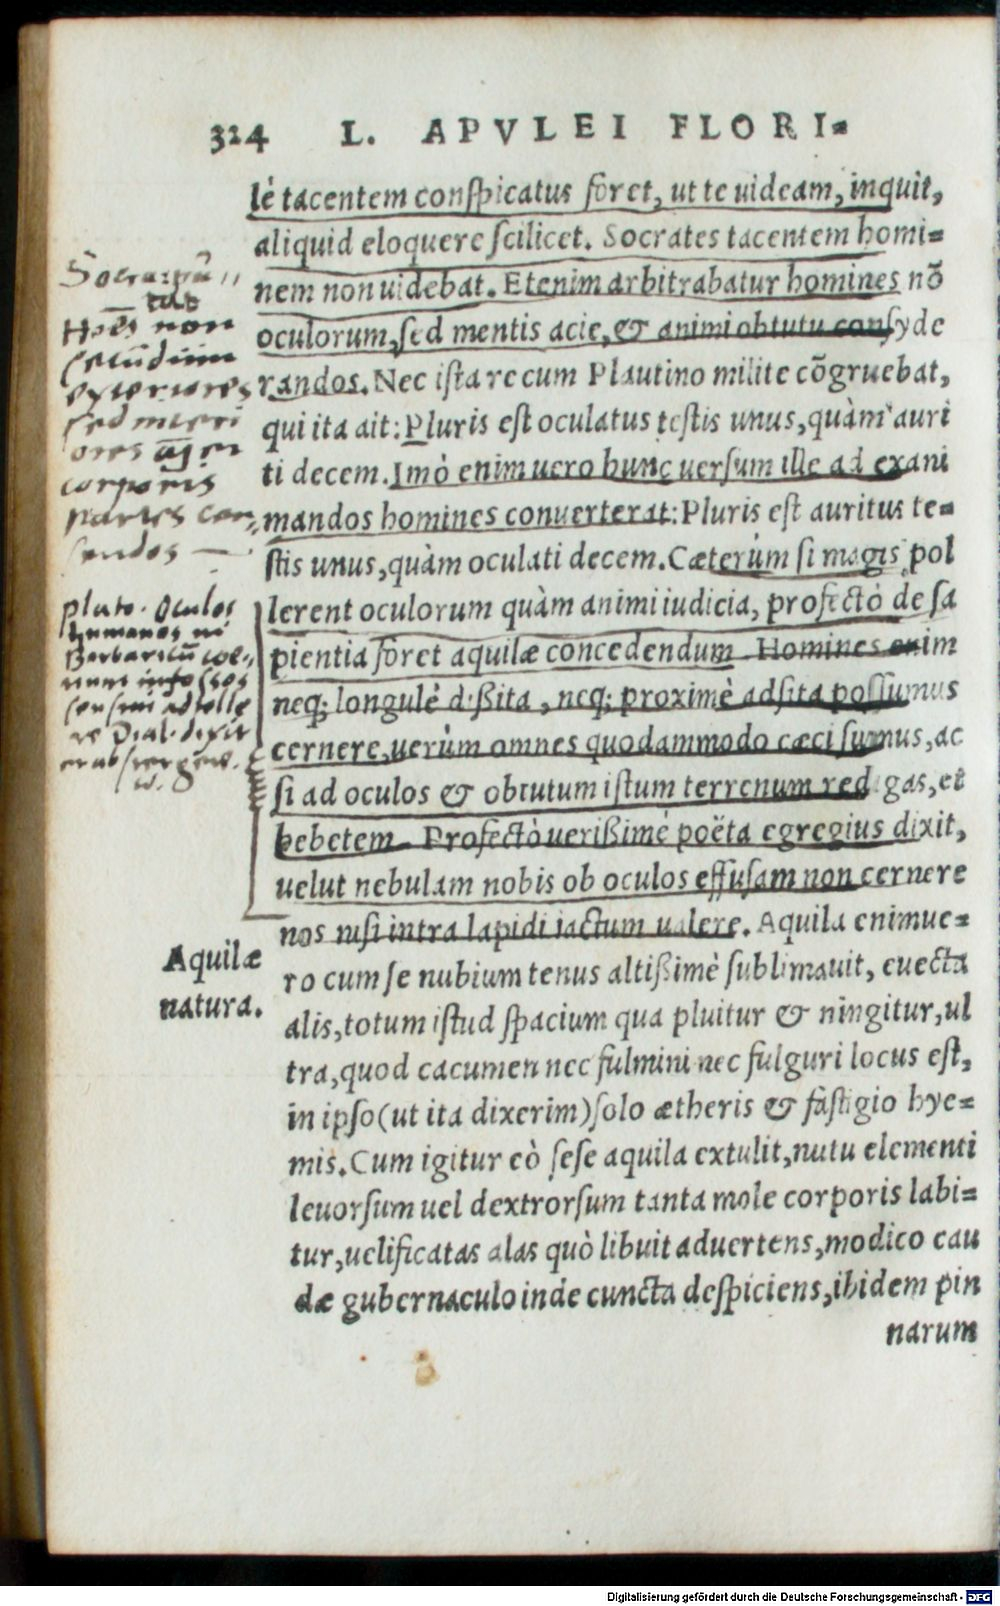 324 L. APVLEI FLORI-
lè tacentem conspicatus foret, ut te uideam, inquit,
aliquid eloquere scilicet. Socrates tacentem homi-
nem non uidebat. Etenim arbitrabatur homines nō
oculorum, sed mentis acie, & animi obtutu consyde
randos. Nec ista re cum Plautino milite cōgruebat,
qui ita ait: Pluris est oculatus testis unus, quàm auri
ti decem. Imò enim uero hunc uersum ille ad exani
mandos homines conuerterat: Pluris est auritus te-
stis unus, quàm oculati decem. Cæterùm si magis pol
lerent oculorum quàm animi iudicia, profectò de sa
pientia foret aquilæ concedendum. Homines enim
neq; longulè dißita, neq; proximè adsita possumus
cernere, uerùm omnes quodammodo cæci sumus, ac
si ad oculos & obtutum istum terrenum redigas, et
hebetem. Profectò uerißimè poëta egregius dixit,
uelut nebulam nobis ob oculos effusam non cernere
nos nisi intra lapidi iactum ualere. Aquila enimue-
ro cum se nubium tenus altißimè sublimauit, euecta
alis, totum istud spacium qua pluitur & ningitur, ul
tra, quod cacumen nec fulmini nec fulguri locus est,
in ipso (ut ita dixerim) solo ætheris & fastigio hye-
mis. Cum igitur eò sese aquila extulit, nutu elementi
leuorsum uel dextrorsum tanta mole corporis labi-
tur, uelificatas alas quò libuit aduertens, modico cau
dæ gubernaculo inde cuncta despiciens, ibidem pin
narum
non
exteriores
sed interi
ores
corporis
partes
Plato. Oculos
humanos
infossos
Dial. dixit
Aquilæ
natura.
Digitalisierung gefördert durch die Deutsche Forschungsgemeinschaft - DFG